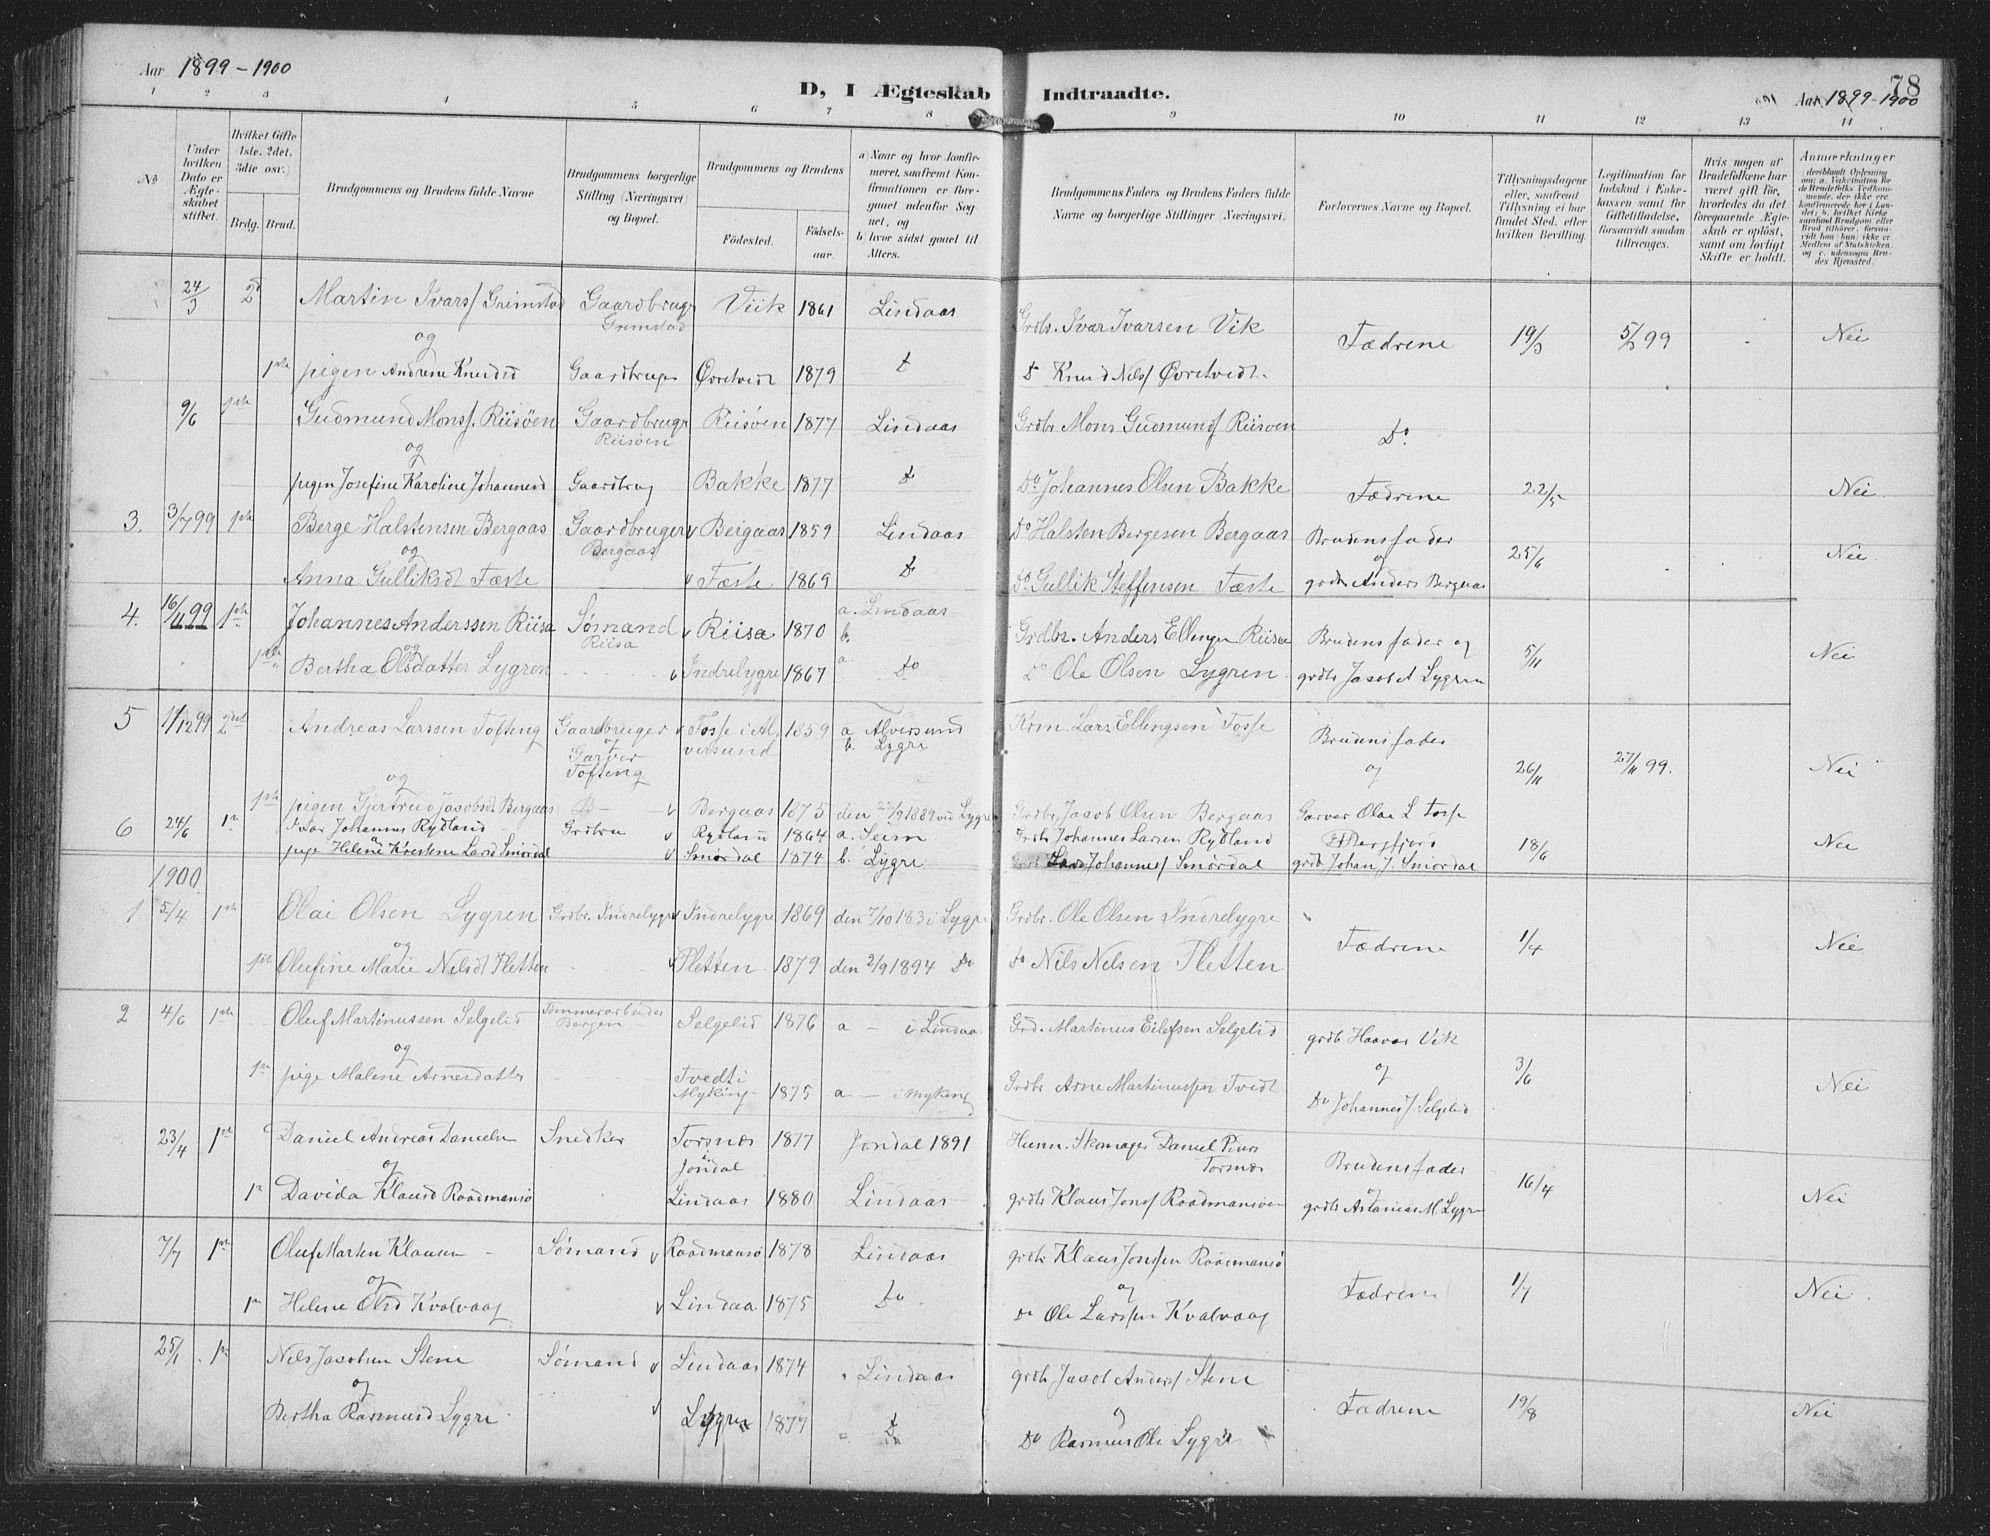 Aar 1899-1900
D, I Ægteskab Indtraadte.
Aar 1899-1900
78
1 2 3 4 5 6 7 8 9 10 11 12 13 14
No
Under hvilken Dato er Ægteskabet stiftet.
Hvilket Gifte 1ste, 2det, 3die osv.)
Brdg. Brud.
Brudgommens og Brudens fulde Navne
Brudgommens borgerlige Stilling (Næringsvei) og Bopæl.
Brudgommens og Brudens
Fødested.
Fødselsaar.
a) Naar og hvor konfirmeret, saafremt Konfirmationen er foregaaet udenfor Sognet, og
b) hvor sidst gaaet til Alters.
Brudgommens Faders og Brudens Faders fulde Navne og borgerlige Stillinger (Næringsvei.
Forlovernes Navne og Bopæl.
Tillysningsdagene eller, saafremt Tillysning ei har fundet Sted, efter hvilken Bevilling.
Legitimation for Indskud i Enkekassen samt for Giftetilladelse, forsaavidt saadan tiltrænges.
Hvis nogen af Brudefolkene har været gift før, hvorledes da det foregaaende Ægteskab er opløst, samt om lovligt Skifte er holdt.
Anmærkninger
24/3 2d Martin Ivars/ Grimstad Gaardbruger Viik 1861 Lindaas Grdbr. Ivar Ivarsen Vik Fædrene 19/3 5/3 99 Nei
Grimstad
og
1ste pigen Andrene Knudsd Gaardbruger Øvretvedt 1879 Do Do Knud Nils/ Øvretvedt.
9/6 1ste Gudmund Mons/. Riisøen Gaardbruger Riisöen 1877 Lindaas Grdbr Mons Gudmunds/ Riisøen Do.
Riisöen
og
pigen Josefine Karoline Johannesd Gaardbrug Bakke 1877 Do Do. Johannes Olsen Bakke Fædrene 22/5 Nei
3. 3/7 99 1ste Berge Halstensen Bergaas Gaardbruger Bergaas 1859 Lindaas Do Halsten Bergesen Bergaas Brudens fader 25/6 Nei.
og Bergaas og
Anna Gulliksdt Fæste Fæste 1869 Do Do. Gullik Steffensen Fæste grdbr Anders Bergaas
4. 16/11 99 1ste Johannes Anderssen Riisa Sømand Riisa 1870 a. Lindaas Grdbr. Anders Ellingsen Riisa Brudens fader og 5/11 Nei
og Riisa b.
1ste Bertha Olsdatter Lygren Indrelygre 1867 a. Do Do Ole Olsen Lygren. grdbr Jacob A Lygren
5 1/12 99 2det Andreas Larssen Tofteng Gaardbruger Fosse i Alversund 1859 a Alversund Krm Lars Ellingsen Fosse Brudens fader 26/11 27/11 99. Nei
og b. Lygre og
Garver
Tofteng
og
1ste pigen Gjertrud Jacobsdt Bergaas Bergaas 1875 den 22/9 1889 ved Lygre Grdbr. Jacob Olsen Bergaas Garver Olai L Fosse
6 24/6 1ste Ivar Johannes Rydland Grdbru Rydland 1864 a. Seim Grdb Johannes Larsen Rydland 18/6 Nei
pige Helene Kristene Larsd Smørdal Smørdal 1874 b. Lygre Lars Johannes/ Smørdal grdb Johan J. Smørdal
1900.
1 5/4 1ste Olai Olsen Lygren Grdbr. Indrelygre Indrelygre 1869 den 7/10 183 i Lygre Grdbr. Ole Olsen Indrelygre Fædrene 1/4 Nei
og
1ste Olufine Marie Nilsdt Fletten Fletten 1879 den 2/9 1894 Do Do Nils Nelsen Fletten
2 4/6 1ste Oluf Martinussen Selgelid Tømmerarbeider Selgelid 1876 a - i Lindaas Grd. Martinus Eilefsen Selgelid grdb Haavar Vik 3/6 Nei
Bergen
og og
1ste pige Malene Arnesdatter Tvedt i Myking 1875 a - i Myking Grdbr Arne Martinussen Tvedt Do Johannes J. Selgelid
23/4 1ste Daniel Andreas Danieln Snedker Torsnæs 1877 Jondal 1891 Husm. Skomager Daniel Torsnæs Brudens fader 16/4 Nei
og i Jondal og
1ste Davida Klausd Raadmansø Lindaas 1880 Lindaas grdb Klaus Jons/ Raadmansøen grdb M. Lygre
7/7 1ste Oluf Marten Klausen Sømand Raadmansø 1878 Lindaas grdb Klaus Jonsen Raadmansø Fædrene 1/7 Nei.
og og
1ste Helene Olsd Kvalvaag Lindaa 1875 Do Do Ole Larssen Kvalvaag
25/1 1ste Nils Jacobsen Stene Sømand Lindaas 1874 Lindaas grdb Jacob Anders/ Stene Fædrene 19/8 Nei
og og
Bertha Rasmusd Lygre Lygre 1877 Do Do Rasmus Ole Lygre